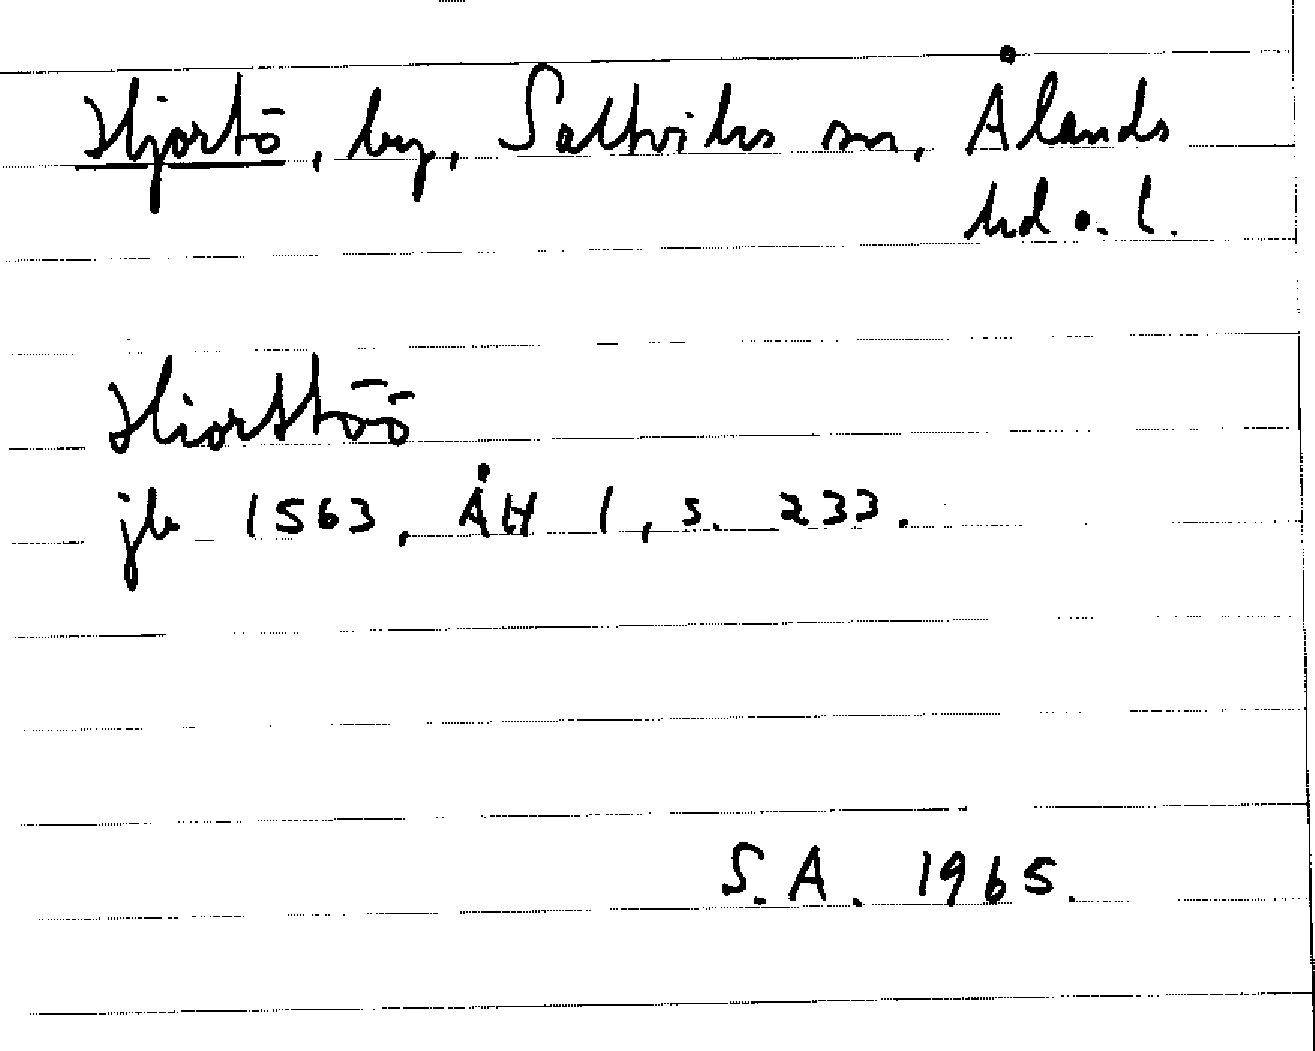 Hjortö, by, Saltviks sn, Ålands
hd o. l.
Hiorttöö
jb 1563, ÅH 1, s. 233.
S.A. 1965.